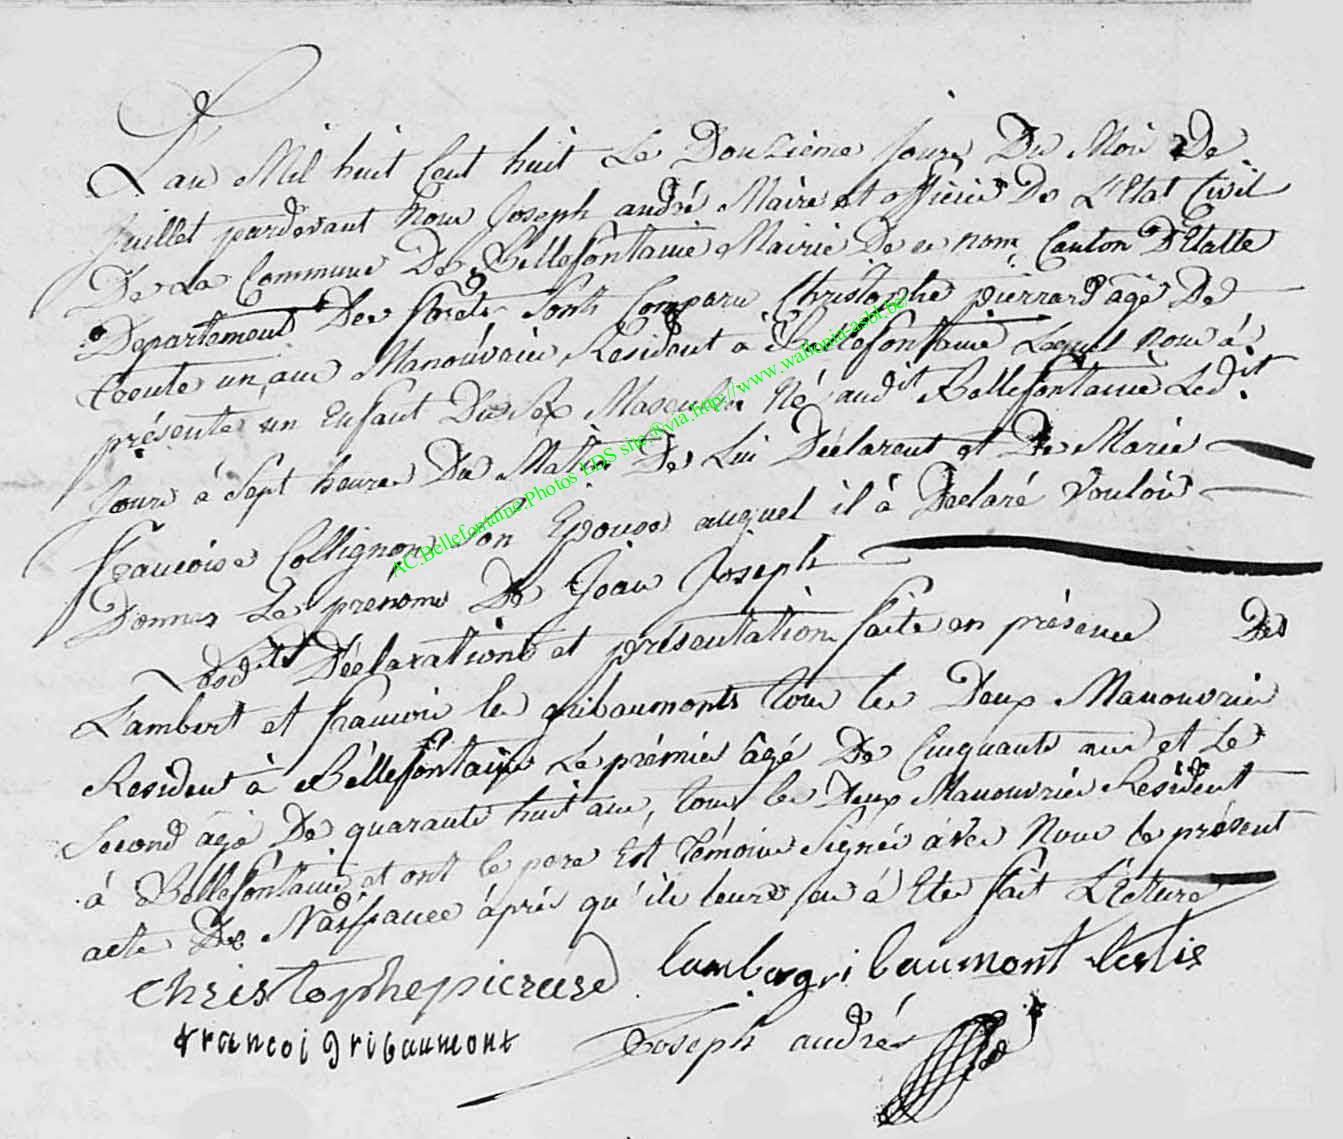 L'an Mil huit Cent huit Le Douzième Jour Du Mois De
Juillet pardevant Nous Joseph andré Maire et officier De L'Etat Civil
De La Commune De Bellefontaine Mairie De ce nom, Canton D'Etalle
Departement Des forêts Sont Comparu Christophe pierrard agé De
trente un ans Manoúvrier Résident à Bellefontaine Lequel Nous à
présenté un Enfant Du Sex Masculin Né aud.it Bellefontaine Led.it
Jour à Sept heures Du Matin De Lui Déclarant et De Marie
françoise Collignon Son Epouse auquel il à Declaré Vouloir
Donner Les prenoms De Jean Joseph
Lesd.ites Déclarations et présentation faite en présence Des
Lambert et francois les gribaumonts tous les Deux Manouvrier
Resident à Bellefontaine Le prémier âgé De Cinquante ans et Le
Second âgé De quarante huit ans, tous les Deux Manouvrier Résident
à Bellefontaine, et ont le pere Est témoins Signés avec Nous le présent
acte De Naissance áprès qu'ils leurs en á Ete fait Lécture
christophe pierard lamber gribaumont
francoi gribaumont Joseph andrés
AC.Bellefontaine.Photos LDS site.®via.http://www.wallonia-asbl.be/